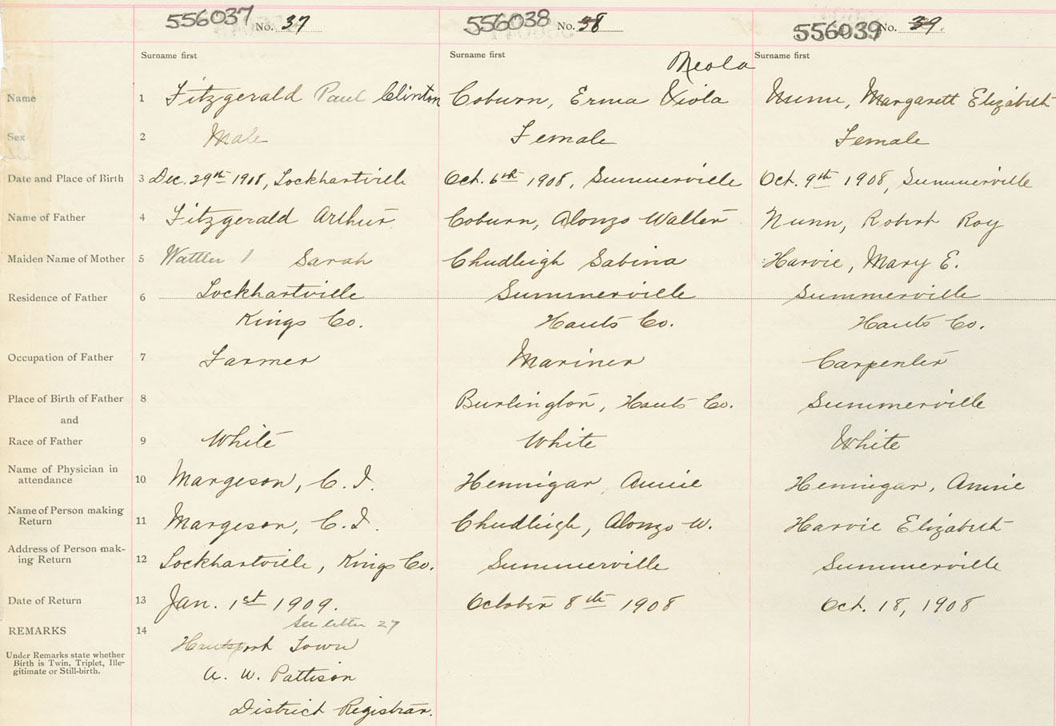 556037 No. 37 556038 No. 38 556039 No. 39.
Surname first Surname first Surname first
Neola
Name 1 Fitzgerald Paul Clinton Coburn, Erma Viola Nunn, Margarett Elizabeth
Sex 2 Male Female Female
Date and Place of Birth 3 Dec. 29th 1908, Lockhartville Oct. 6th 1908, Summerville Oct. 9th 1908, Summerville
Name of Father 4 Fitzgerald Arthur Coburn, Alonzo Walter Nunn, Robert Roy
Maiden Name of Mother 5 Sarah Chudleigh Sabina Harvie, Mary E.
Residence of Father 6 Lockhartville Summerville Summerville
Kings Co. Hants Co. Hants Co.
Occupation of Father 7 Farmer Mariner Carpenter
Place of Birth of Father 8 Burlington, Hants Co. Summerville
and
Race of Father 9 White White White
Name of Physician in
attendance 10 Margeson, C. I. Hennigar, Annie Hennigar, Annie
Name of Person making
Return 11 Margeson, C. I. Chudleigh, Alonzo W. Harvie Elizabeth
Address of Person mak-
ing Return 12 Lockhartville, Kings Co. Summerville Summerville
Date of Return 13 Jan. 1st 1909. October 8th 1908 Oct. 18, 1908
See letter 27
REMARKS 14 Hantsport Town
Under Remarks state whether
Birth is Twin, Triplet, Ille-
gitimate or Still-birth.
A. W. Pattison
District Registrar.